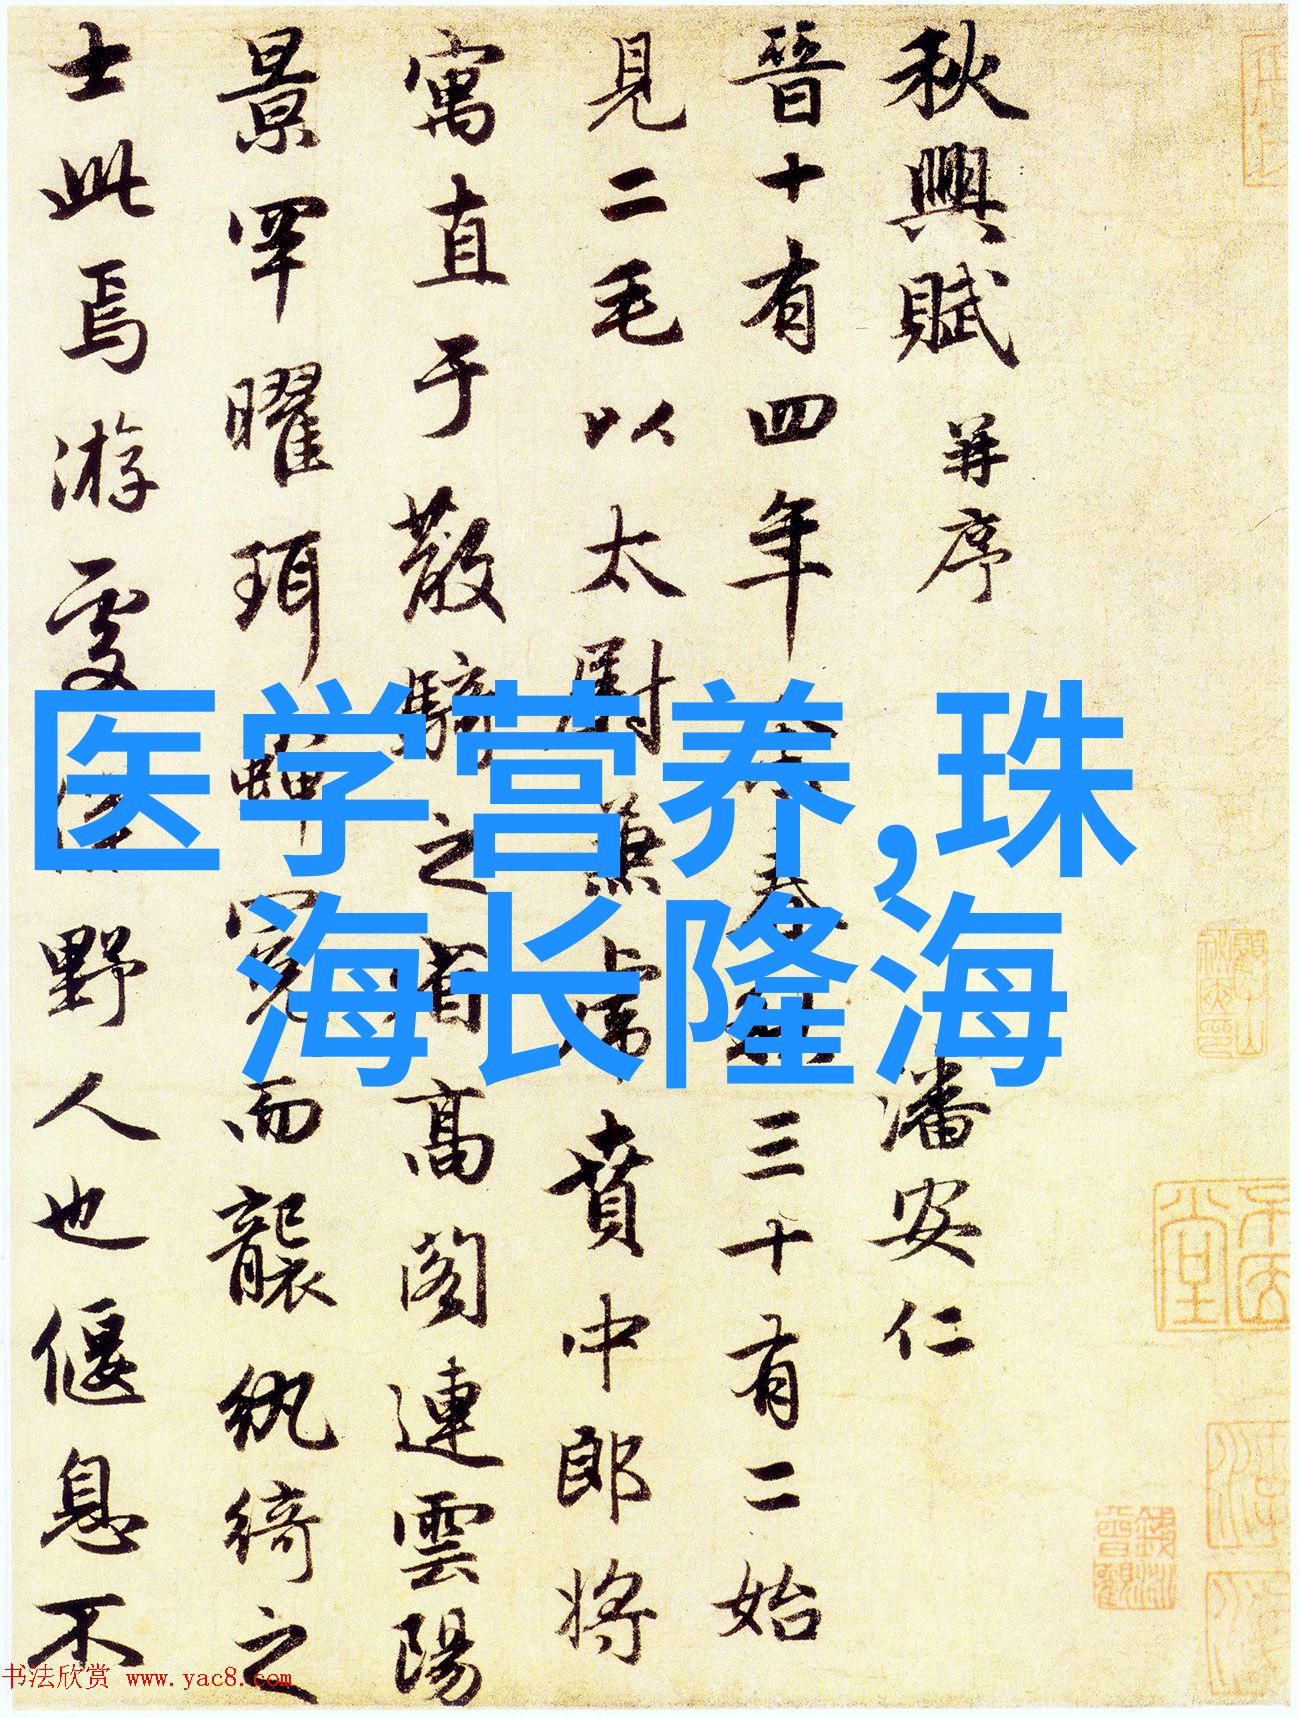 秋興賦 并序 潘安仁
晉十有四年余春秋三十有二始
見二毛以太尉兼虎賁中郎将
寓直于散騎之省高閣連雲陽
景罕曜珥蟬冕而襲紈綺之
士此焉游處僕野人也偃息不
医学营养,珠
海长隆海
书法欣赏 www.yac8.com